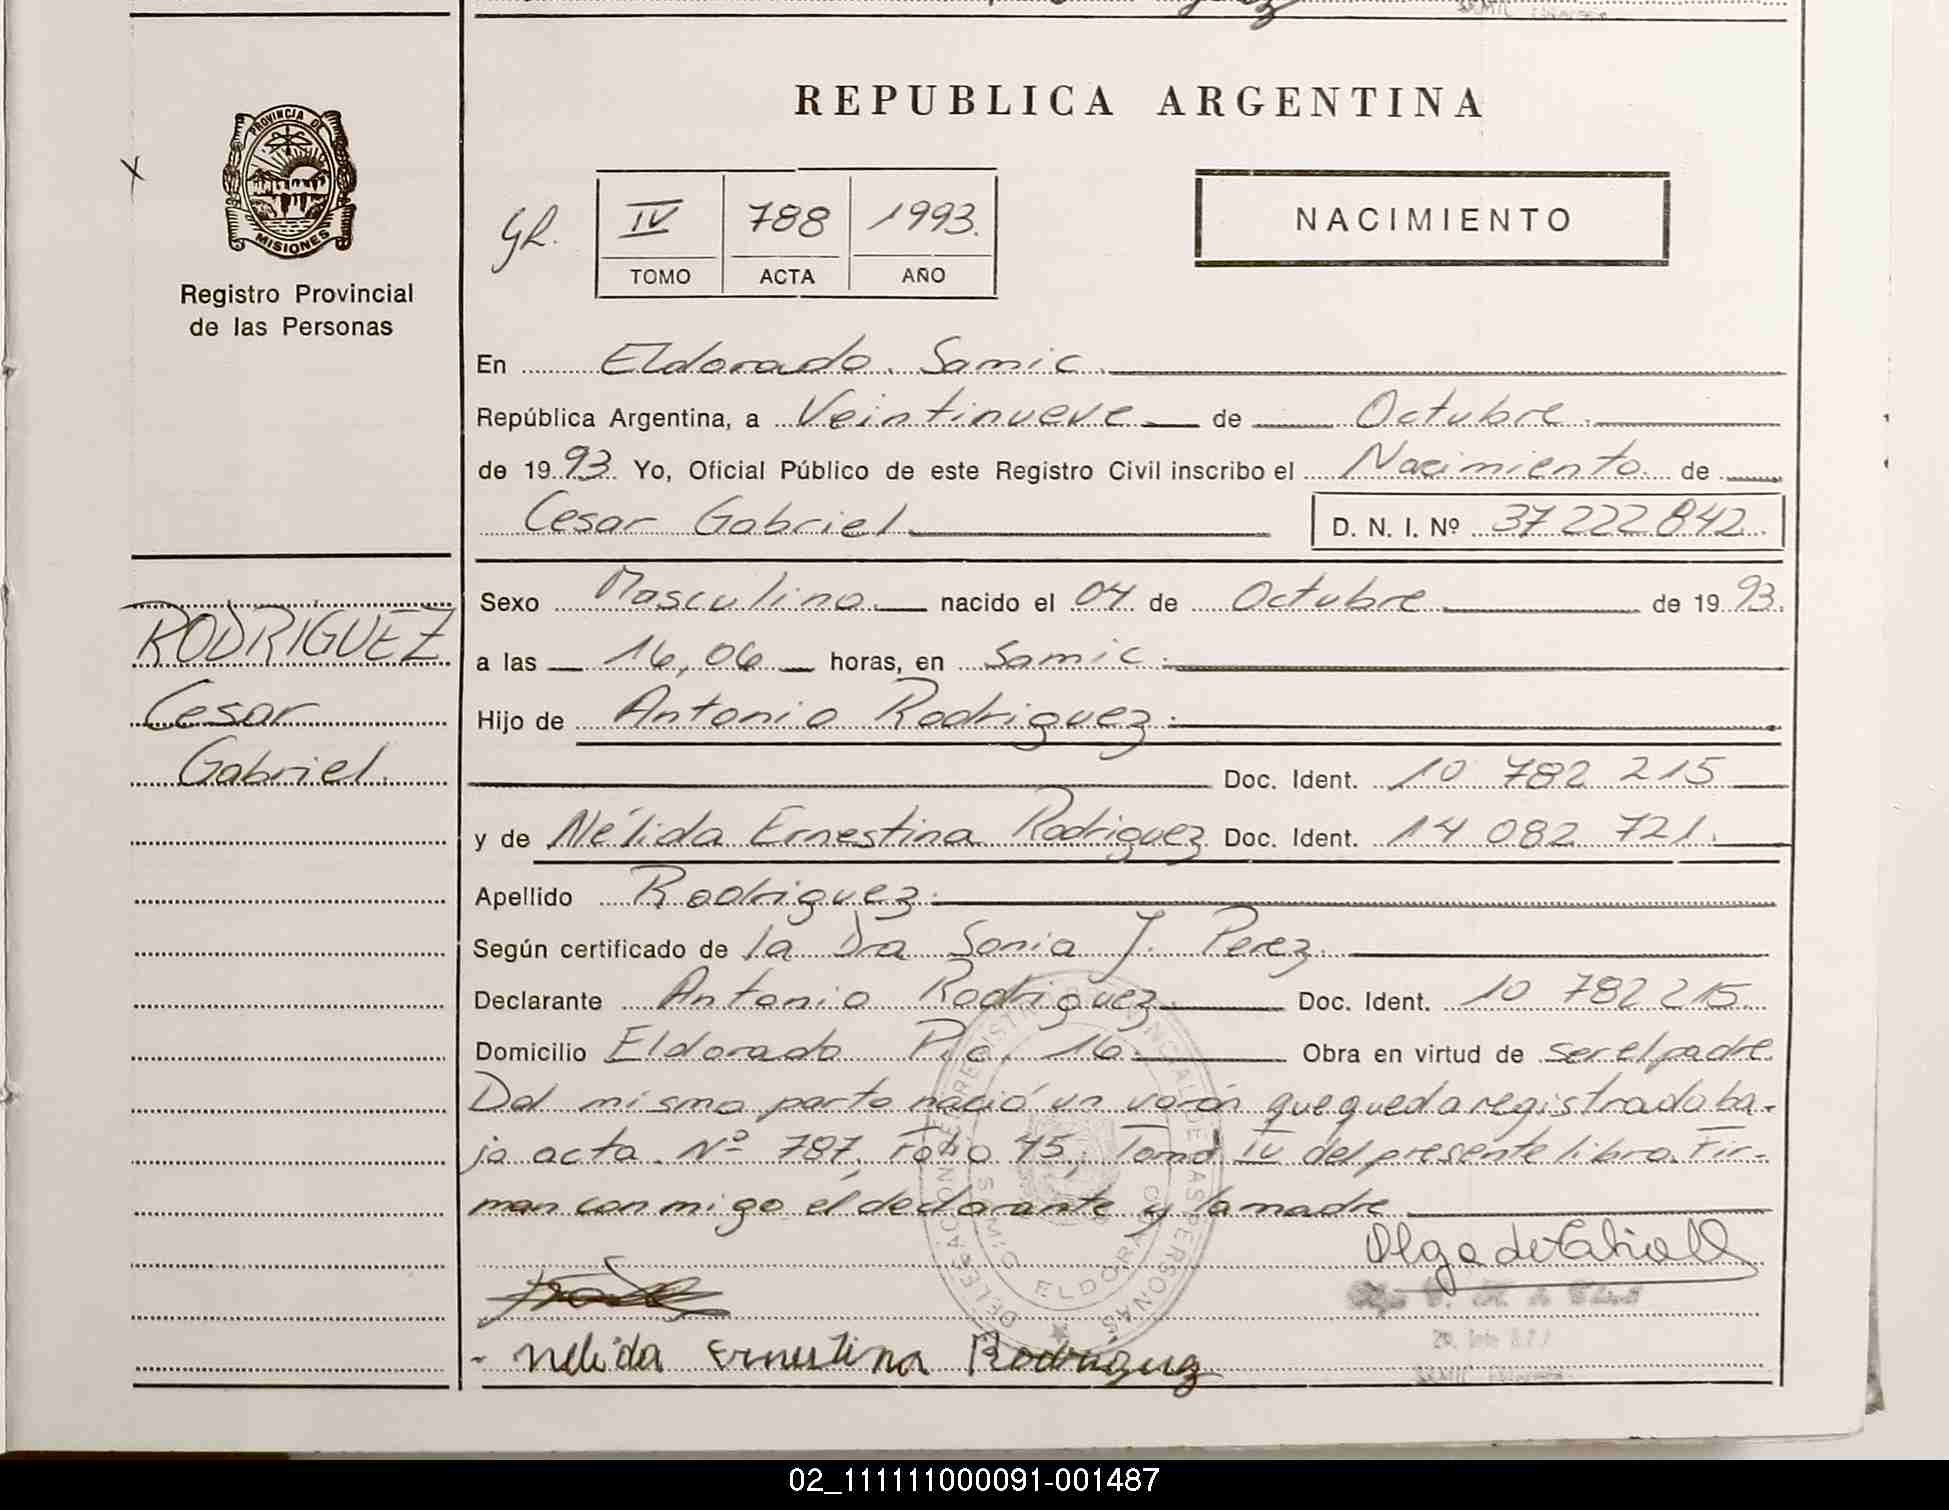 REPUBLICA ARGENTINA
PROVINCIA DE
MISIONES
Registro Provincial
de las Personas
IV 788 1993.
TOMO ACTA AÑO
NACIMIENTO
En Eldorado. Samic.
República Argentina, a Veintinueve de Octubre.
de 1993. Yo, Oficial Público de este Registro Civil inscribo el Nacimiento de
Cesar Gabriel D. N. I. Nº 37 222 842.
RODRIGUEZ
Cesar
Gabriel.
Sexo Masculino. nacido el 04 de Octubre de 1993.
a las 16,06 horas, en Samic.
Hijo de Antonio Rodriguez.
Doc. Ident. 10 782 215
y de Nélida Ernestina Rodriguez Doc. Ident. 14 082 721.
Apellido Rodriguez.
Según certificado de la Dra Sonia J. Perez.
Declarante Antonio Rodriguez. Doc. Ident. 10 782 215
Domicilio Eldorado 16. Obra en virtud de ser el padre.
Del mismo parto nació un varón que queda registrado ba-
jo acta. Nº 787, Folio 45, Tomo IV del presente libro. Fir-
man conmigo el declarante y la madre
Olga de
- Nelida Ernestina Rodriguez
DELEGACION REGISTRO PROVINCIAL DE LAS PERSONAS
ELDORADO
02_111111000091-001487